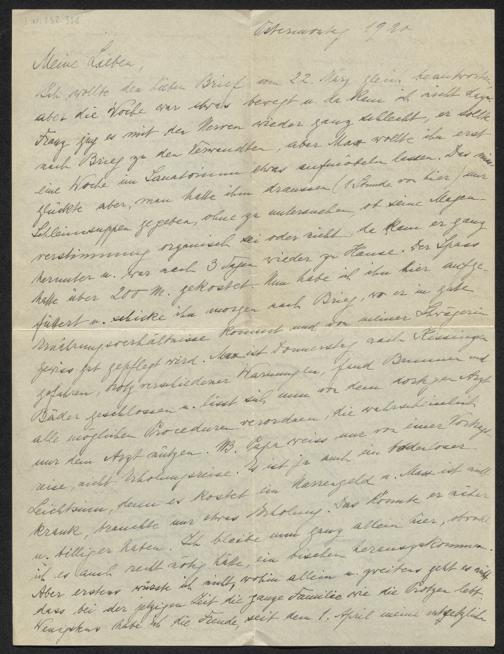 Ostermontag 1920
Meine Lieben,
Ich wollte den lieben Brief vom 22. März gleich beantworten,
aber die Woche war etwas bewegt u. da kam ich nicht dazu.
Franz ging es mit den Nerven wieder ganz schlecht, er sollte
nach Brieg zu den Verwandten, aber Max wollte ihn erst
eine Woche im Sanatorium etwas aufmöbeln lassen. Das miss-
glückte aber, man hatte ihm draussen (1 Stunde von hier) nur
Schleimsuppen gegeben, ohne zu untersuchen, ob seine Magen-
verstimmung organisch sei oder nicht, da kam er ganz
herunter u. war nach 3 Tagen wieder zu Hause. Der Spass
hatte über 200 M. gekostet. Nun habe ich ihn hier aufge-
füttert u. schicke ihn morgen nach Brieg, wo er in gute
Ernährungsverhältnisse kommt und von meiner Schwägerin
gewiss gut gepflegt wird. Max ist Donnerstag nach Kissingen
gefahren, trotz verschiedener Warnungen, fand Brunnen und
Bäder geschlossen u. lässt sich nun von dem dortigen Arzt
alle möglichen Proceduren verordnen, die wahrscheinlich
nur dem Arzt nützen. NB. Papa weiss nur von einer Vortrags-
reise, nicht Erholungsreise. Es ist ja auch ein bodenloser
Leichtsinn, denn es kostet ein Narrengeld u. Max ist nicht
krank, brauchte nur etwas Erholung. Das könnte er näher
u. billiger haben. Ich bleibe nun ganz allein hier, obwohl
ich es auch recht nötig hätte, ein bischen herauszukommen.
Aber erstens wüsste ich nicht, wohin allein u. zweitens geht es nicht,
dass bei der jetzigen Zeit die ganze Familie wie die Protzen lebt.
Wenigstens habe ich die Freude, seit dem 1. April meine entsetzliche